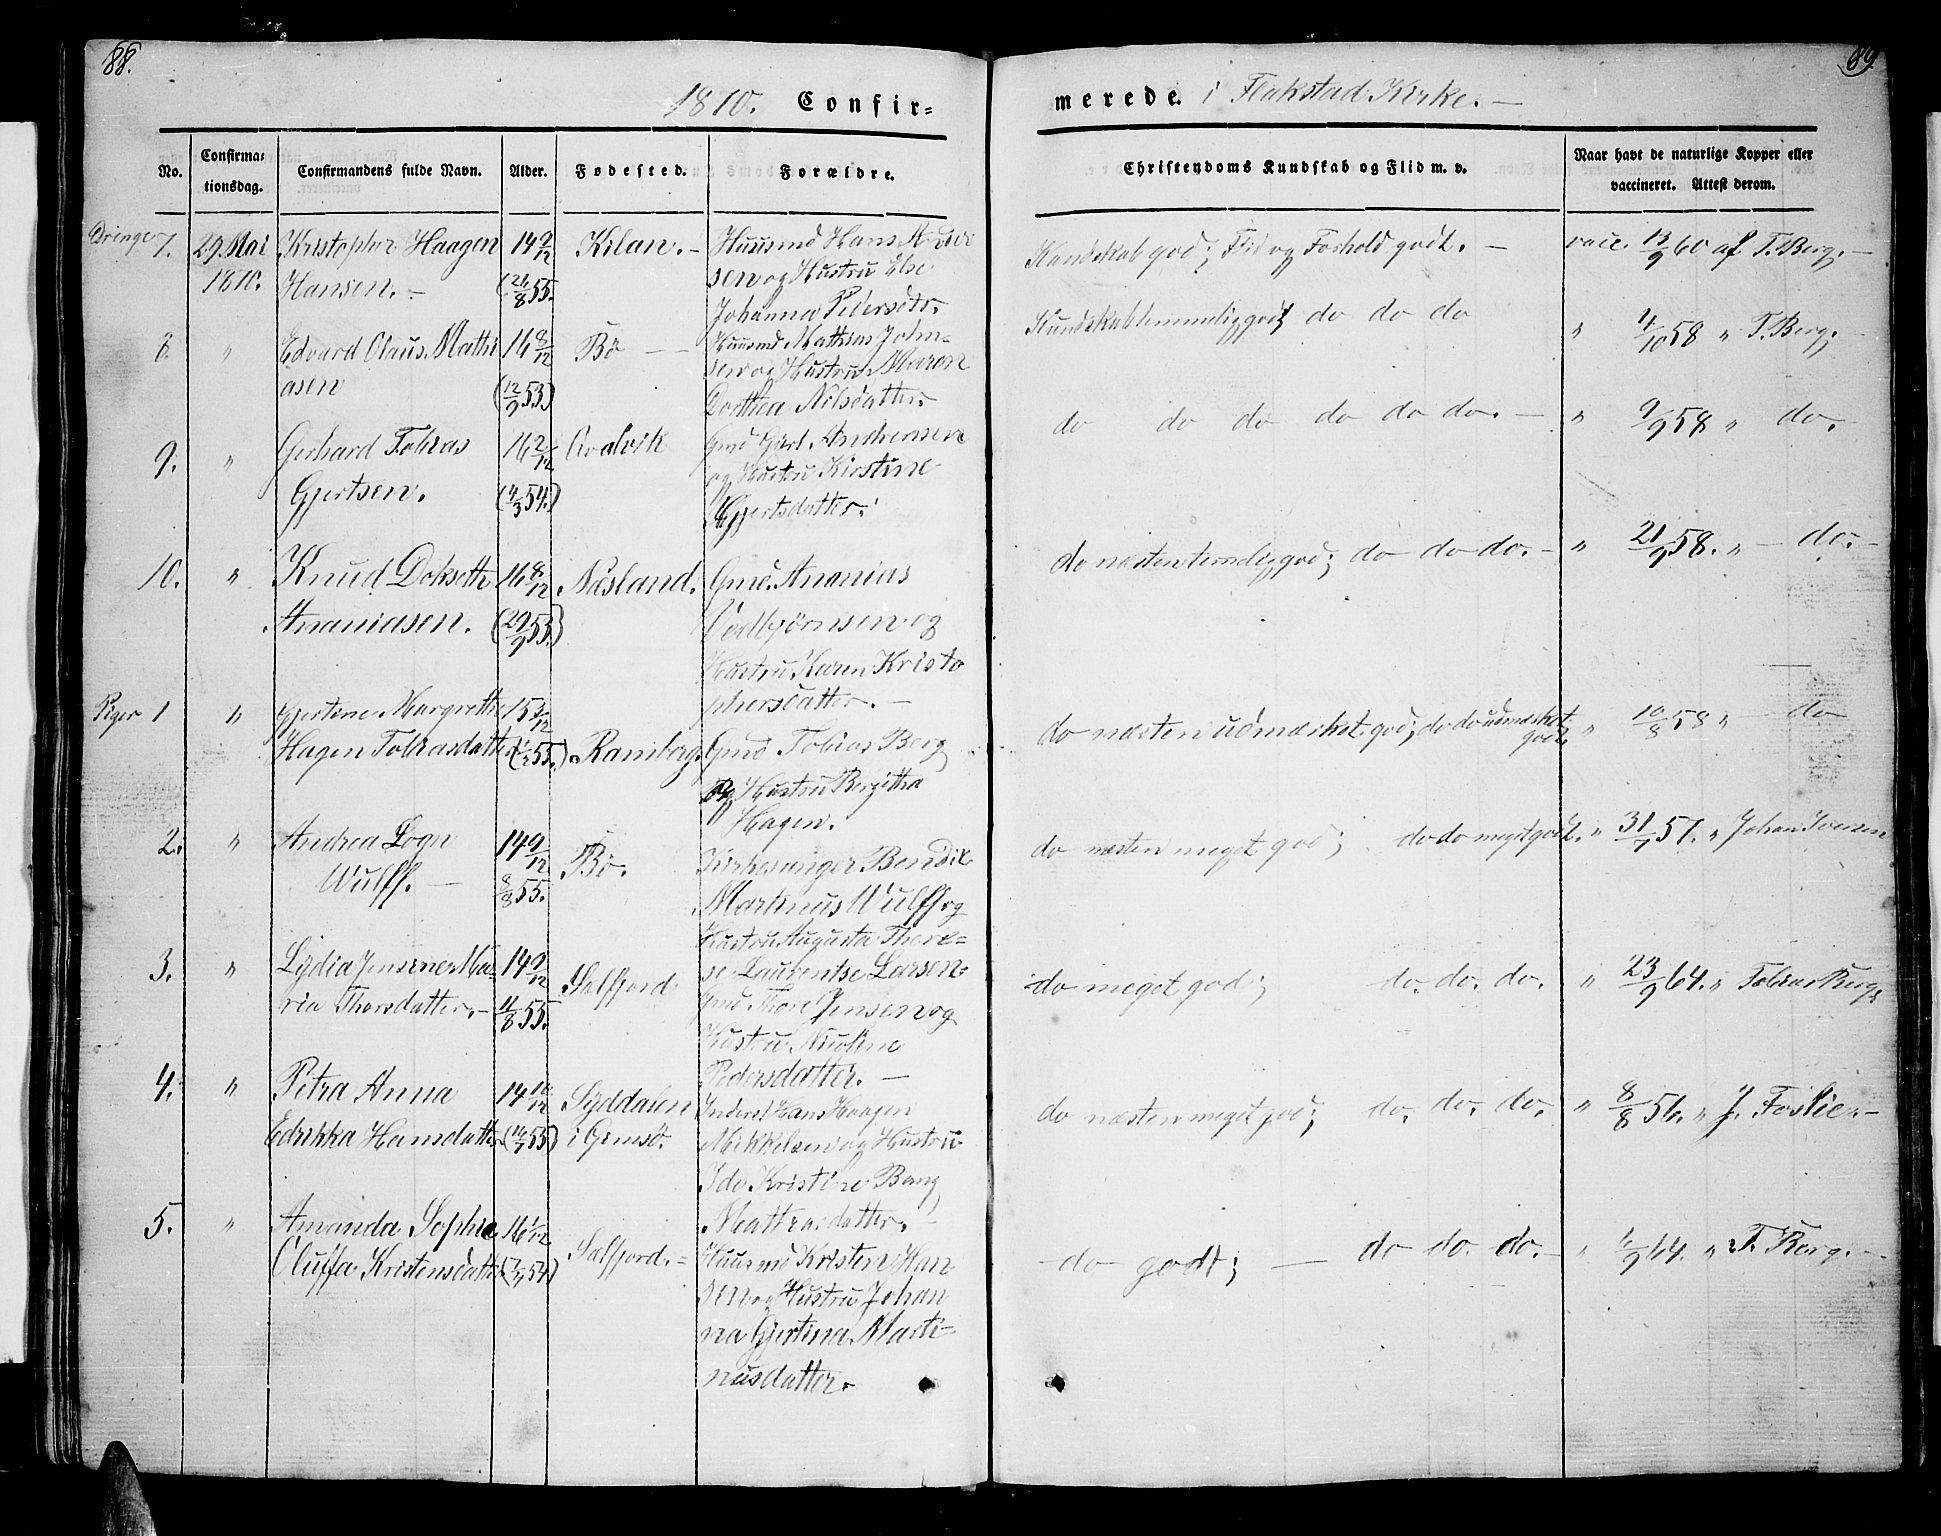 88.
89.
1870. Confirmerede i Flakstad Kirke. —
No.
Confirmationsdag.
Confirmandens fulde Navn.
Alder.
Fødested.
Forældre.
Christendoms Kundskab og Flid m. v.
Naar havt de naturlige Kopper eller
vaccineret. Attest derom.
Drenger 7. 29 Mai Kristopher Haagen 14 9/12 Kilan. —
1870. Hansen. — 55.
Huusmd Hans
sen og Hustru Else
Johanna Pedersdtr.
Kundskab god; Flid og Forhold godt. — vacc. 13/9 60 af T. Berg. —
8. " Edvard Olaus Mathi 16 8/12 Bö —
asen (12/9 53.)
Huusmd Mathias John-
sen og Hustru Maren
Dorthea Nilsdatter.
Kundskab temmelig god; do do do " 4/10 58 " T. Berg. —
9. " Gerhard Tobias 16 2/12
Gjertsen. (4/3 54.)
Gmd Gjert Andreasen
og Hustru Kirstine
Gjertsdatter.
do do do do do do. — " 9/9 58 " do.
10. " Knud Dokseth 16 8/12 Næsland.
Ananiasen. (29/9 53.)
Gmd. Ananias
Vedbjörnsen og
Hustru Karen Kristo
phersdatter. —
do næsten temlig god; do do do. — " 21/9 58. " — do. —
Piger 1 " Gjertine Margrethe 15 3/12
Hagen Tobiasdatter 55.) Ramberg.
Gmd Tobias Berg
og Hustru Bergitha
Hagen.
do næsten udmærket god; do do udmærket
godt. " 10/8 58 " — do
2. " Andrea Logn 14 9/12 Bö.
Wulff. — 8/8 55.
Kirkesanger Bendik
Martinus Wulff og
Hustru Augusta There-
se Laurentse Larsen.
do næsten meget god; do do meget godt. " 31/7 57. " Johan Iversen
3. " Lydia Jensine Ma- 14 9/12
ria Thorsdatter. — 11/8 55. Selfjord.
Gmd Thore Jensen og
Hustru Nicoline
Pedersdatter. —
do meget god; do. do. do. " 23/9 64. " Tobias Berg
4. " Petra Anna 14 10/12 Syddalen
Edrikka Hansdatter 55) i Gimsö.
Inderst Hans Haagen
Mikkelsen og Hustru
Ide Kristine Bang
Mathiasdatter. —
do næsten meget god; do. do. do. " 8/8 56. " J. Foslie. —
5. " Amanda Sophie 16 1/12
Oluffa Kristensdatter 54.) Selfjord. —
Huusmd Kristen Han
sen og Hustru Johan
na Gjertina Marti-
nusdatter.
do godt; — do do. do. — " 64. " T. Berg. —